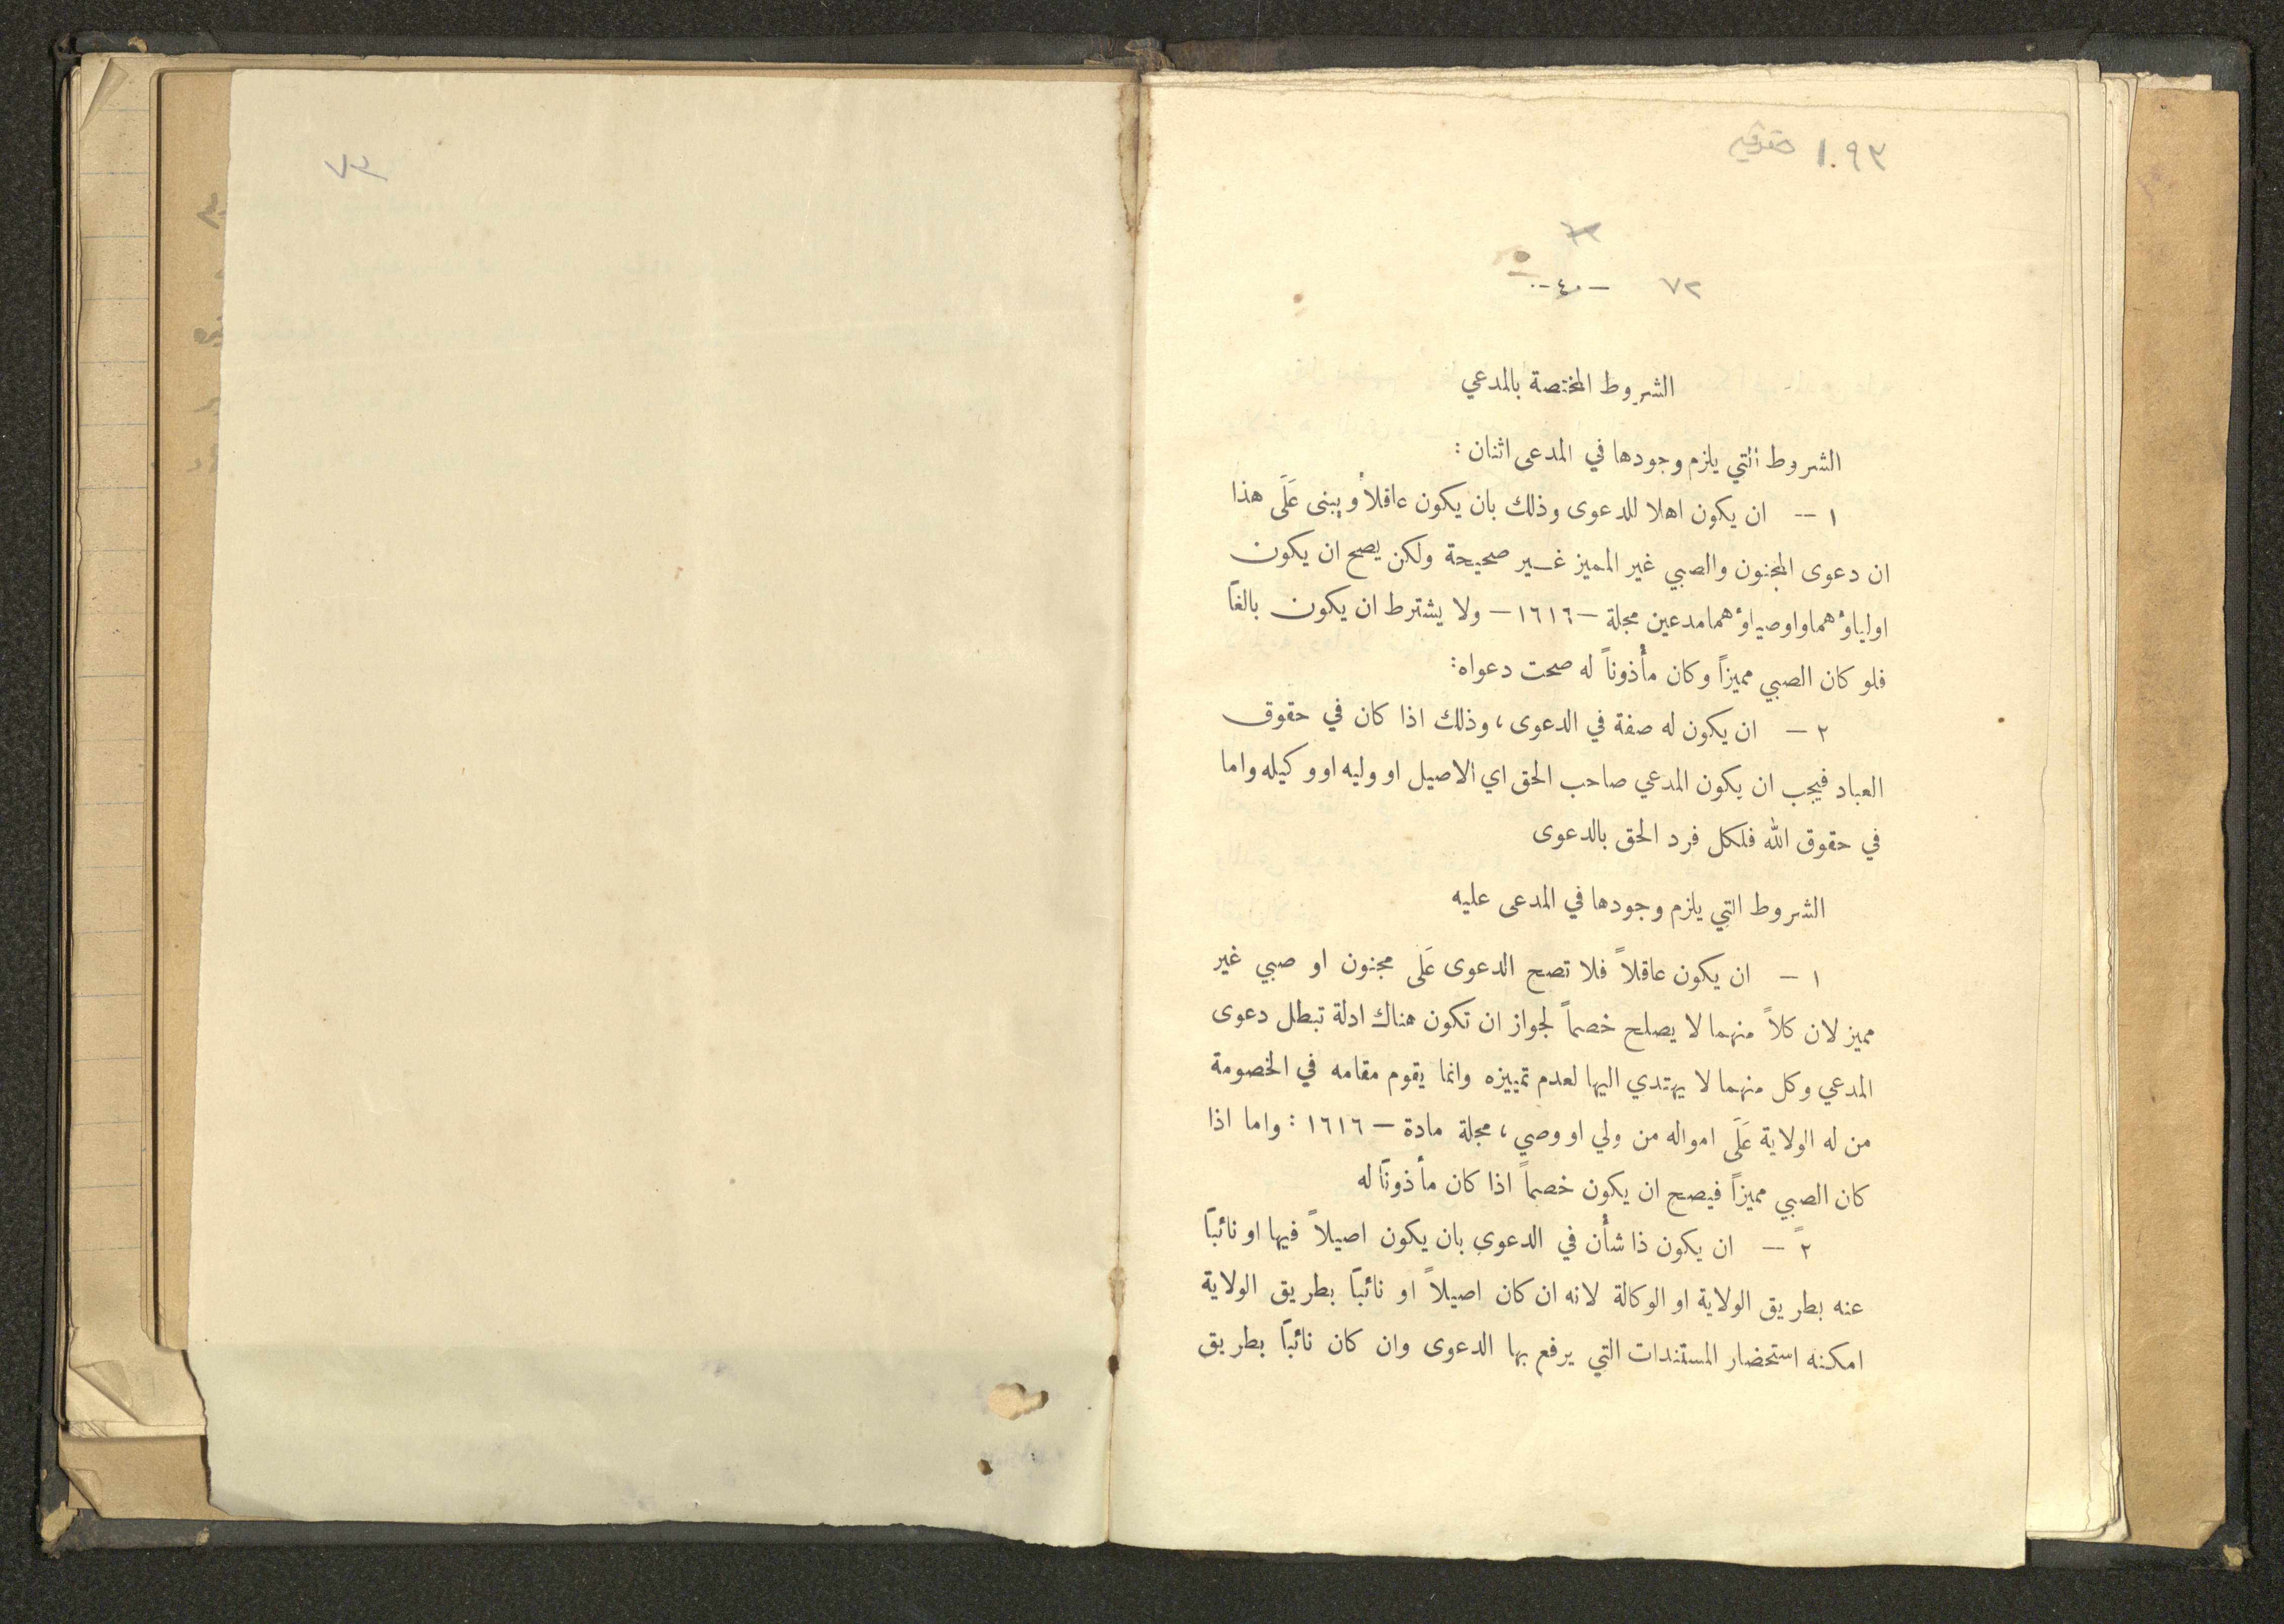 ١٠٩٣ حقوقيه
٧٢
-٤٠-
الشروط المختصة بالمدعي
الشروط التي يلزم وجودها في المدعى اثنان :
١ -- ان يكون اهلا للدعوى وذلك بان يكون عاقلاً ويبنى عَلَى هذا
ان دعوى المجنون والصبي غير المميز غير صحيحة ولكن يصح ان يكون
اولياؤهما واوصياؤهما مدعين مجلة - ١٦١٦ - ولا يشترط ان يكون بالغاً
فلو كان الصبي مميزاً وكان مأذوناً له صحت دعواه :
٢ - ان يكون له صفة في الدعوى ، وذلك اذا كان في حقوق
العباد فيجب ان يكون المدعي صاحب الحق اي الاصيل او وليه او وكيله واما
في حقوق الله فلكل فرد الحق بالدعوى
الشروط التي يلزم وجودها في المدعى عليه
١ - ان يكون عاقلاً فلا تصح الدعوى عَلَى مجنون او صبي غير
مميز لان كلاً منهما لا يصلح خصماً لجواز ان تكون هناك ادلة تبطل دعوى
المدعي وكل منهما لا يهتدي اليها لعدم تمييزه وانما يقوم مقامه في الخصومة
من له الولاية عَلَى امواله من ولي او وصي ، مجلة مادة - ١٦١٦ : واما اذا
كان الصبي مميزاً فيصح ان يكون خصماً اذا كان مأذوناً له
٢ً - ان يكون ذا شأن في الدعوى بان يكون اصيلاً فيها او نائباً
عنه بطريق الولاية او الوكالة لانه ان كان اصيلاً او نائباً بطريق الولاية
امكنه استحضار المستندات التي يرفع بها الدعوى وان كان نائباً بطريق
٧٣